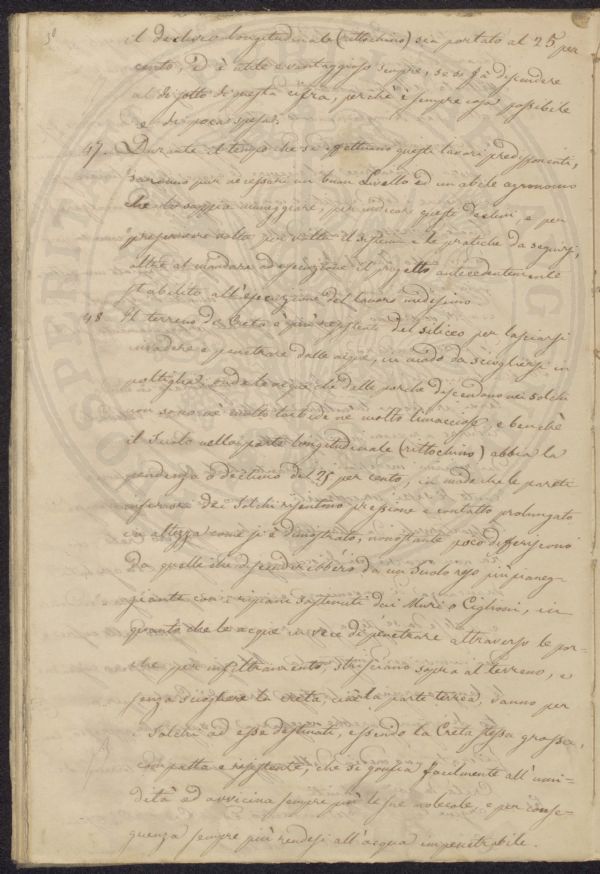 50
il declivo longitudinale (rittochino) sia portato al 25 per
cento, ed è utile e vantaggioso sempre, se si fa discendere
al di sotto di questa cifra, perchè è sempre cosa possibile
e di poca spesa.
47. Durante il tempo che si effettuano questi lavori predisponenti,
saranno pur necessari un buon Livello ed un abile agronomo
che lo sappia maneggiare, per indicare queste declivi, e per
prescrivere volta per volta il sistema e le pratiche da seguirsi,
oltre al mandare ad esecuzione il progetto antecedentemente
stabilito all'esecuzione del lavoro medesimo.
48 Il terreno di Creta è più resistente del siliceo per lasciarsi
invadere e penetrare dalle acque, in modo da sciogliersi in
poltiglia; onde le acque che dalle porche discendono nei solchi
non sono nè molto torbide nè molto limacciose, e benchè
il Suolo nella parte longitudinale (rittochino) abbia la
pendenza o declivio del 25 per cento, in modo che le pareti
inferiori dei Solchi risentono pressione e contatto prolungato
in altezza come si è dimostrato, nonostante poco differiscono
da quelle che discenderebbero da un Suolo reso più pianeg-
giante con i ripiani sostenuti dai Muri o Ciglioni, in
quanto che le acque invece di penetrare attraverso le por-
che per infiltramento, strisciano sopra al terreno, e
senza sciogliere la creta, cioè la parte terrea, vanno per
i Solchi ad esse destinati, essendo la Creta stessa grassa,
compatta e resistente, che si gonfia facilmente all'umi-
dità ed avvicina sempre più le sue molecole, e per conse-
guenza sempre più rendesi all'acqua impenetrabile.